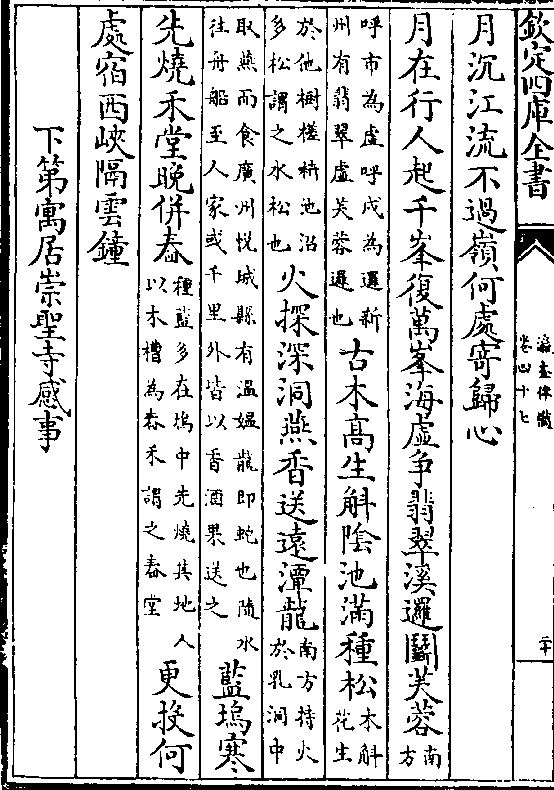 欽定四庫全書
瀛奎律髓
卷四十七
二十
月沉江流不過嶺何處寄歸心
月在行人起千峯復萬峯海虛争翡翠溪邏鬭芙蓉南方
呼市為虛呼戍為邏新
州有翡翠虛芙蓉邏也
古木髙生斛陰池滿種松木斛
花生
於他樹槎枿池沼
多松謂之水松也
火探深洞燕香送遠潭龍南方持火
於乳洞中
取燕而食廣州悦城縣有温媪龍即蛇也隨水
往舟船至人家或千里外皆以香酒果送之
藍塢寒
先燒禾堂晚併舂
種藍多在塢中先燒其地人
以木槽為舂禾謂之舂堂
更投何
處宿西峽隔雲鐘
下第寓居崇聖寺感事